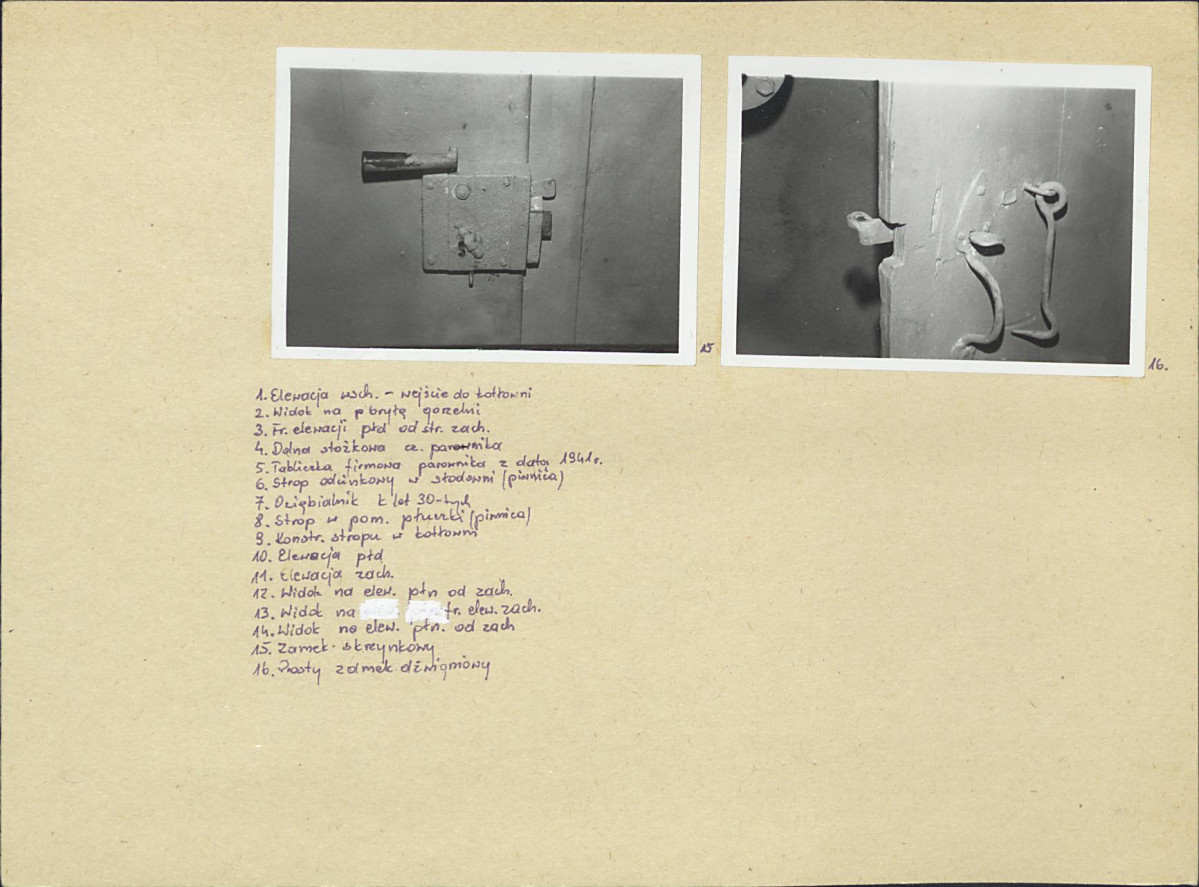 15
16.
1. Elewacja wsch. - wejście do kotłowni
2. Widok na bryłę gorzelni
3. Fr. elewacji płd od str. zach.
4. Dolna stożkowa cz. parownika
5. Tabliczka firmowa parownika z datą 1941 r.
6. Strop odcinkowy w słodowni (piwnica)
7. Oziębialnik z lat 30-tych
8. Strop w pom. płuczki (piwnica)
9. Konstr. stropu w kotłowni
10. Elewacja płd
11. Elewacja zach.
12. Widok na elew. płn od zach.
13. Widok na fr. elew. zach.
14. Widok na elew. płn. od zach
15. Zamek skrzynkowy
16. Prosty zamek dźwigniowy